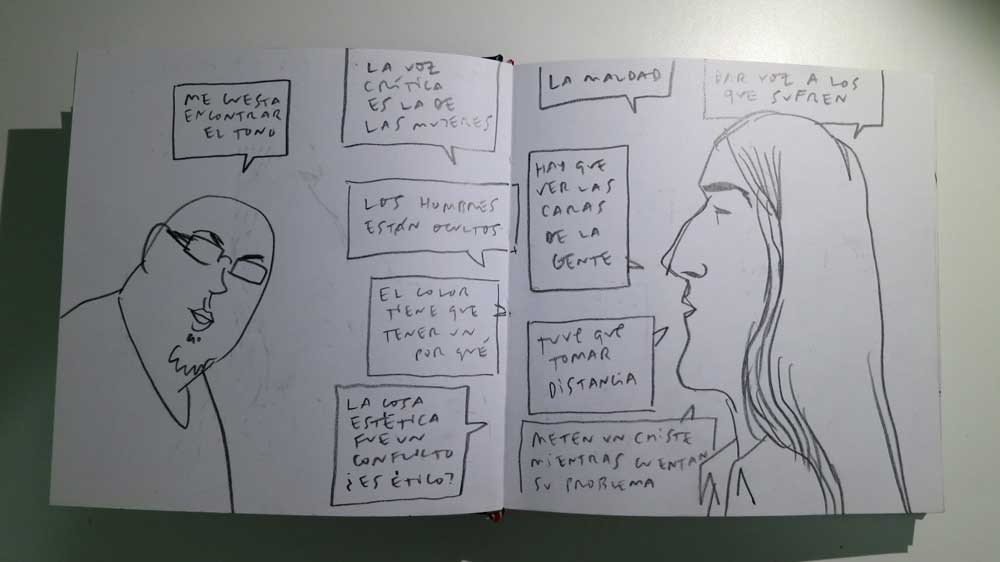 ME CUESTA
ENCONTRAR
EL TONO
LA VOZ
CRÍTICA
ES LA DE
LAS MUJERES
LOS HOMBRES
ESTÁN OCULTOS
EL COLOR
TIENE QUE
TENER UN
POR QUÉ
LA COSA
ESTÉTICA
FUE UN
CONFLICTO
¿ES ÉTICO?
LA MALDAD
DAR VOZ A LOS
QUE SUFREN
HAY QUE
VER LAS
CARAS
DE LA
GENTE
TUVE QUE
TOMAR
DISTANCIA
METEN UN CHISTE
MIENTRAS CUENTAN
SU PROBLEMA